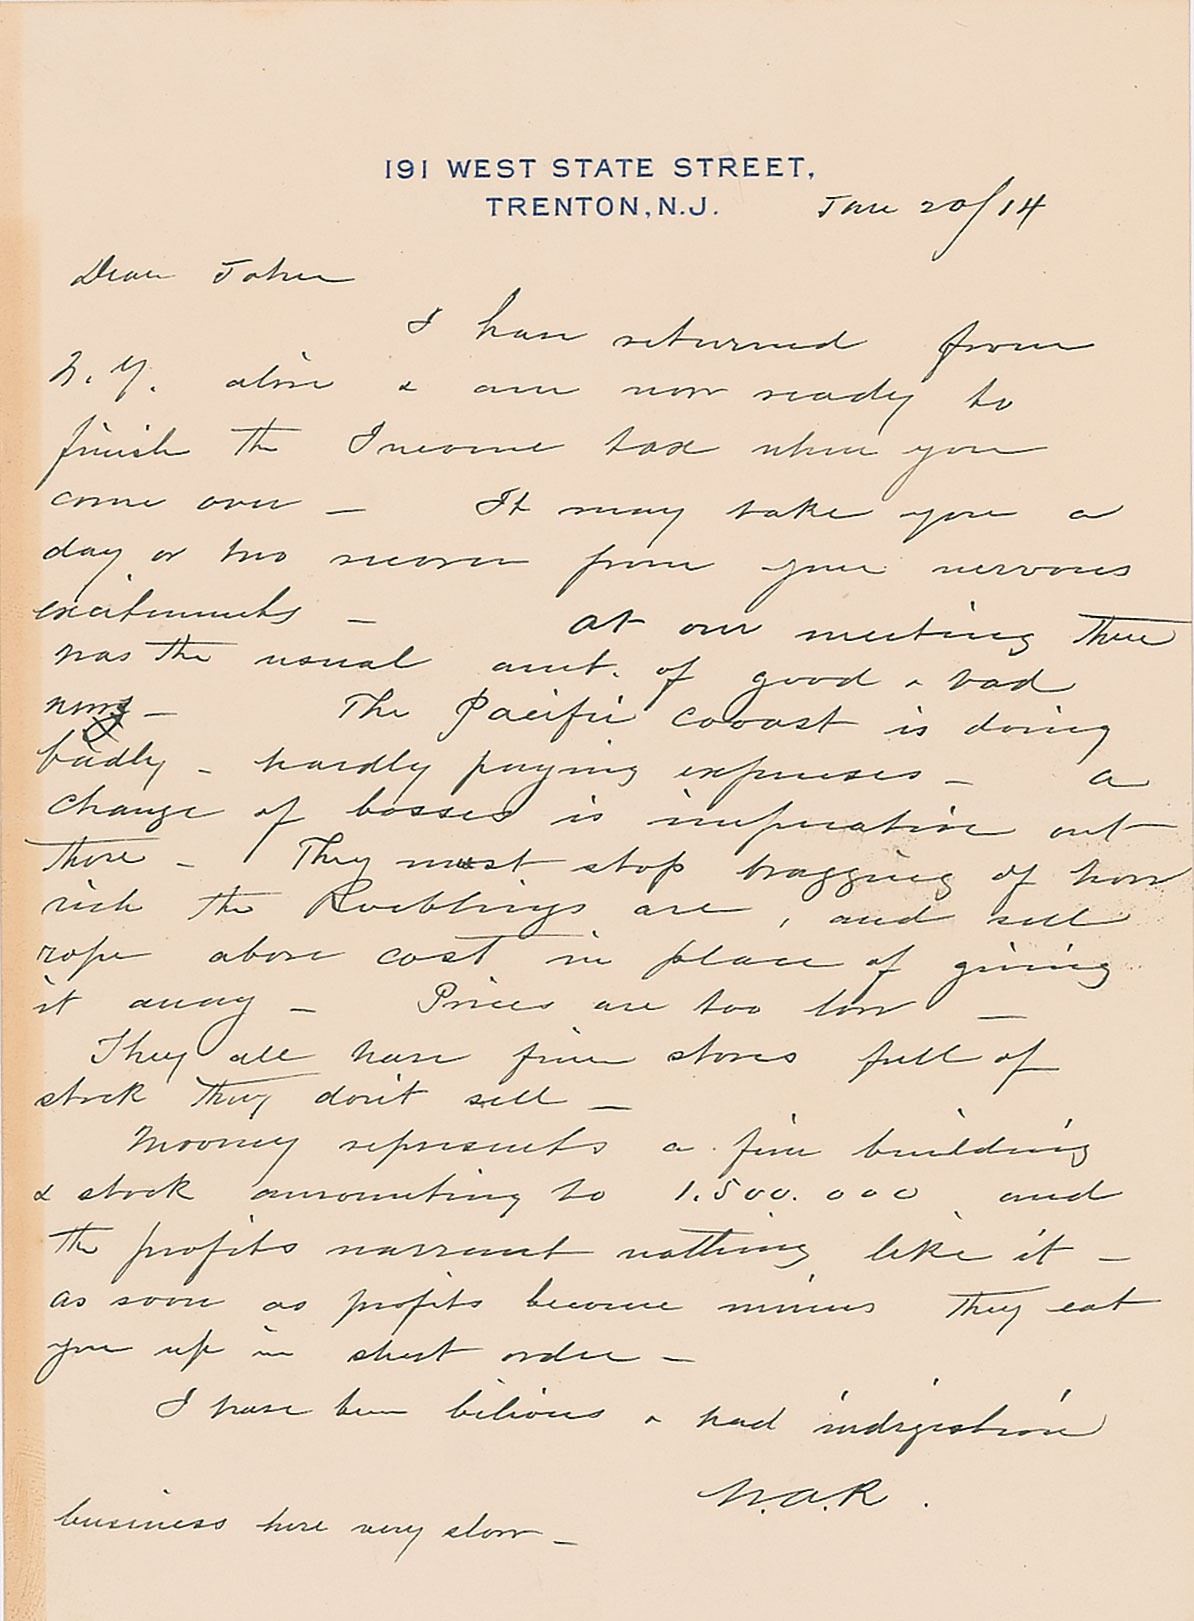 191 WEST STATE STREET,
TRENTON, N.J.
Jan 20/14
Dear John
I have returned from
N. Y. alive & am now ready to
finish the Income tax when you
come over — It may take you a
day or two recover from your nervous
excitements — at our meeting there
was the usual amt. of good & bad
news — The Pacific cooast is doing
badly - hardly paying expenses — a
change of bosses is imperative out
there — They must stop bragging of how
rich the Roeblings are, and sell
rope above cost in place of giving
it away — Prices are too low —
They all have fine stores full of
stock they don't sell —
Mooney represents a fine building
& stock amounting to 1.500.000 and
the profits warrant nothing like it —
as soon as profits become minus they eat
you up in short order —
I have been bilious & had indigestion
W.A.R.
business here very slow —